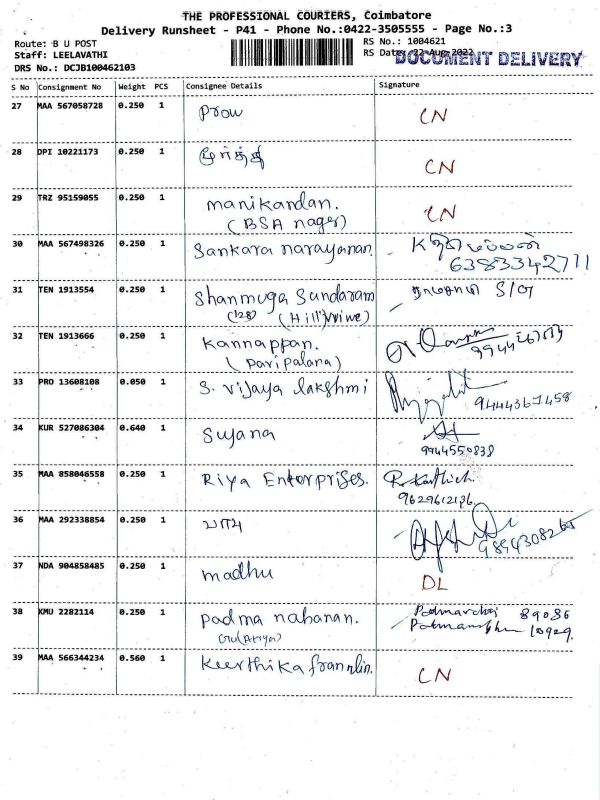 THE PROFESSIONAL COURIERS, Coimbatore
Delivery Runsheet - P41 - Phone No.:0422-3505555 - Page No.:3
Route: B U POST
Staff: LEELAVATHI
DRS No.: DCJB100462103
RS No.: 1004621
RS Date: 22-Aug-2022
DOCUMENT DELIVERY
S No Consignment No Weight PCS Consignee Details Signature
27 MAA 567058728 0.250 1 Prow CN
28 DPI 10221173 0.250 1 மூர்த்தி CN
29 TRZ 95159055 0.250 1 manikandan. CN
(BSA nager)
30 MAA 567498326 0.250 1 Sankara narayanan
6383342711
31 TEN 1913554 0.250 1 Shanmuga Sundaram
(128) (Hill view)
32 TEN 1913666 0.250 1 Kannappan.
(Paripalana)
33 PRO 13608108 0.050 1 S. vijaya lakshmi
9444361458
34 KUR 527086304 0.640 1 Sujana
9944550838
35 MAA 858046558 0.250 1 Riya Enterprises. R. Karthick
9629612136
36 MAA 292338854 0.250 1 பாபு
37 NDA 904858485 0.250 1 madhu DL
38 KMU 2282114 0.250 1 padma nabanan. 89086
10929
39 MAA 566344234 0.560 1 Keerthika franklin. CN